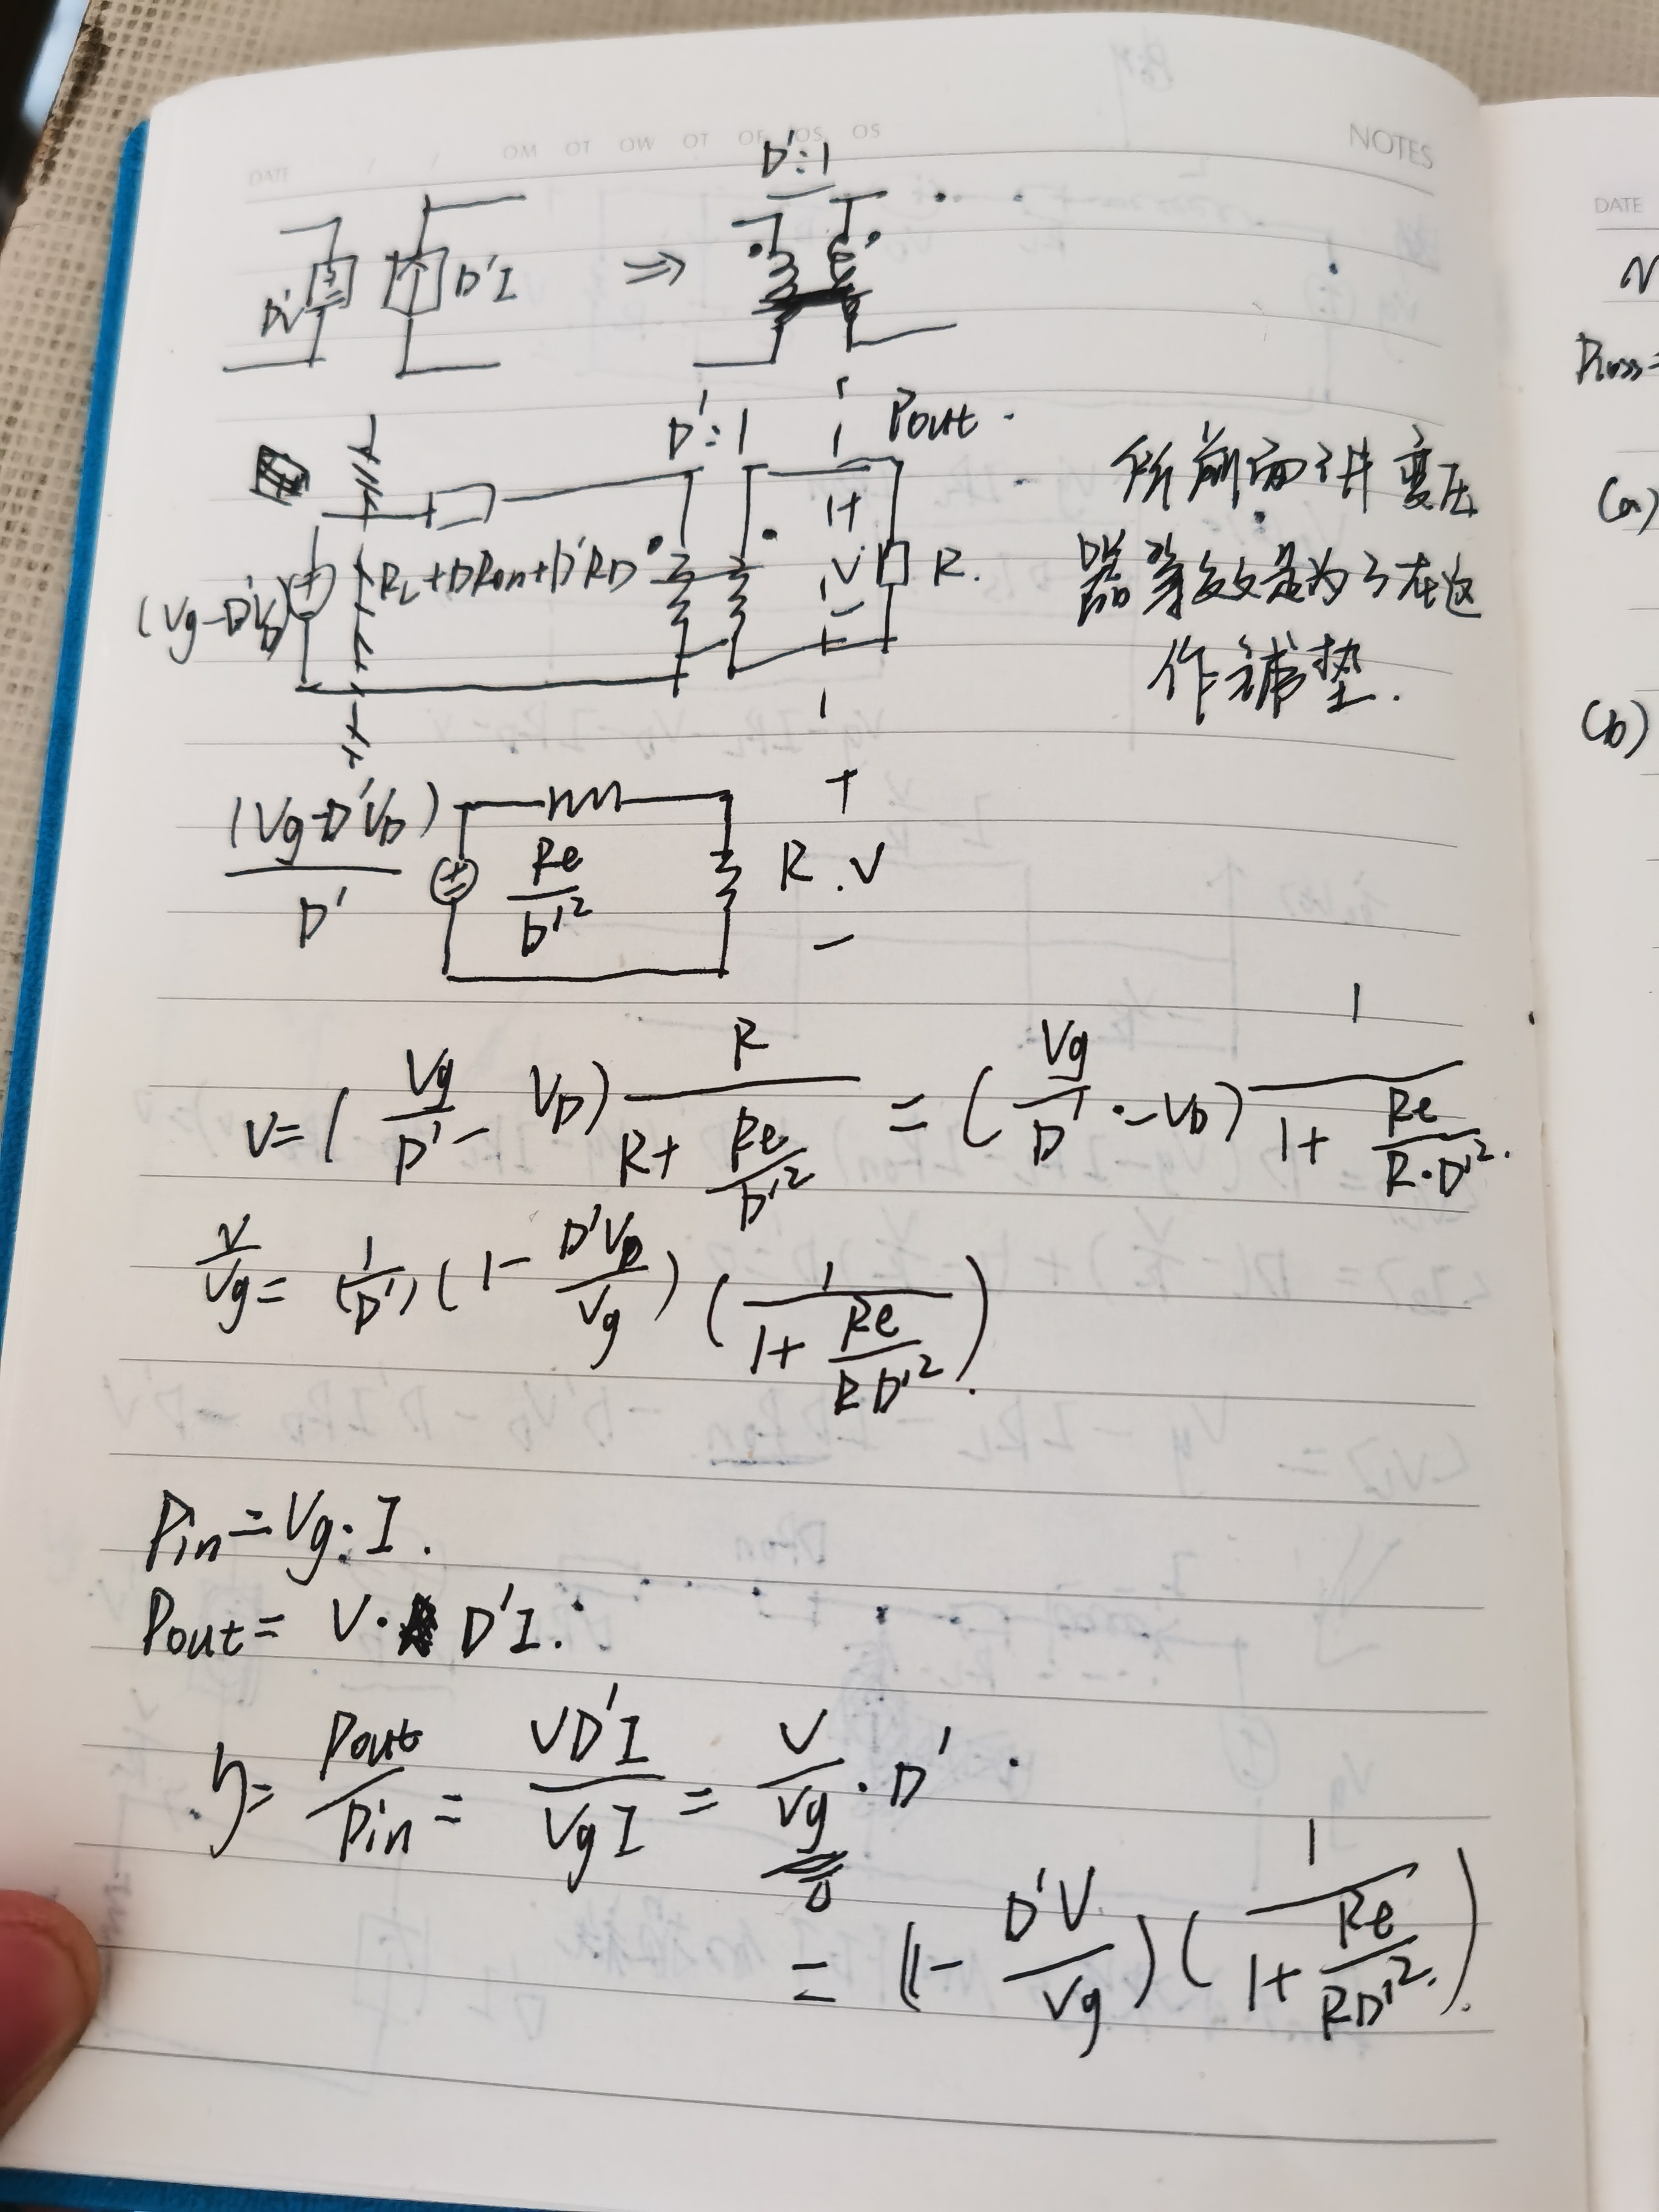 DATE / / OM OT OW OT OF OS OS NOTES
D':1
D'V D'I ⇒
D':1 Pout
(Vg-D'VD) RL+DRon+D'RD + V - R.
所前面讲变压
器等效是为了在这
作铺垫.
(Vg-D'VD)/D' Re/D'² R V + -
V=(Vg/D' - VD) R/(R+Re/D'²) = (Vg/D' - VD) 1/(1+Re/(R·D'²)).
V/Vg = (1/D')(1-D'VD/Vg)(1/(1+Re/(RD'²))).
Pin=Vg·I.
Pout= V·D'I.
η= Pout/Pin = VD'I/VgI = V/Vg·D'
= (1-D'V/Vg)(1/(1+Re/(RD'²))).
DATE
Ploss=
(a)
(b)